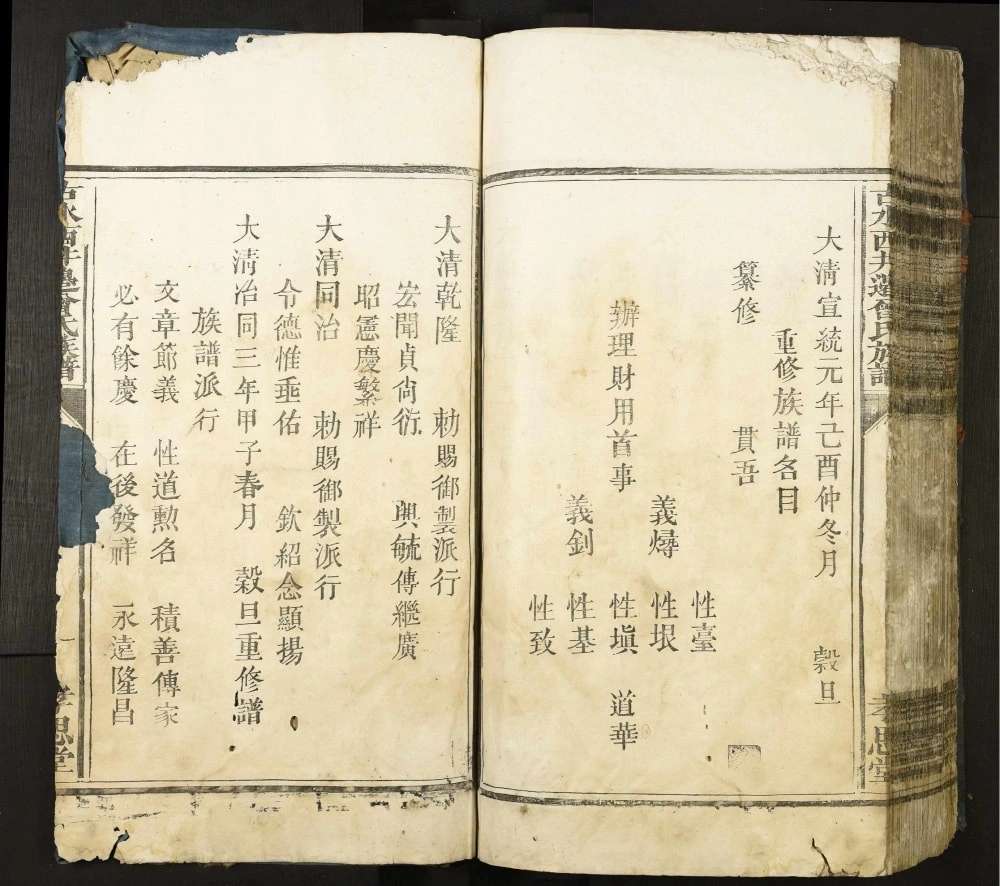 吉水西井邊曾氏族譜
孝思堂
大清宣統元年己酉仲冬月 穀旦
重修族譜名目
纂修 貫吾
性臺
義燖 性垠
辦理財用首事 性塡 道華
義釗 性基
性致
大清乾隆 勅賜御製派行
宏聞貞尙衍 興毓傳繼廣
昭憲慶繁祥
大清同治 勅賜御製派行
令德惟垂佑 欽紹念顯揚
大淸冶同三年甲子春月 穀旦重修譜
族譜派行
文章節義 性道勲名 積善傳家
必有餘慶 在後發祥 永遠隆昌
吉水西井邊曾氏族譜
一
孝思堂